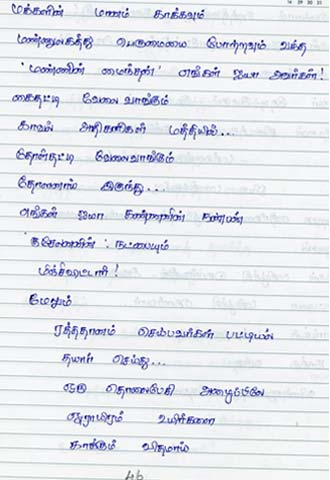 மக்களின் மனம் காக்கவும்
மண்ணுலகத்து பெருமையை போற்றவும் வந்த
'மண்ணின் மைந்தன்' எங்கள் ஐயா அவர்கள்!
கைதட்டி வேலைவாங்கும்
காவல் அதிகாரிகள் மத்தியில்...
தோள்தட்டி வேலைவாங்கும்
தோழனாய் இருந்து...
எங்கள் ஐயா கண்ணனின் நண்பன்
'குசேலனின்' நட்பையும்
மிஞ்சிவிட்டார்!
மேலும்
ரத்ததானம் செய்பவர்கள் பட்டியல்
தயார் செய்து...
ஒரு தொலைபேசி அழைப்பிலே
ஓராயிரம் உயிர்களை
காக்கும் விதமாய்
46